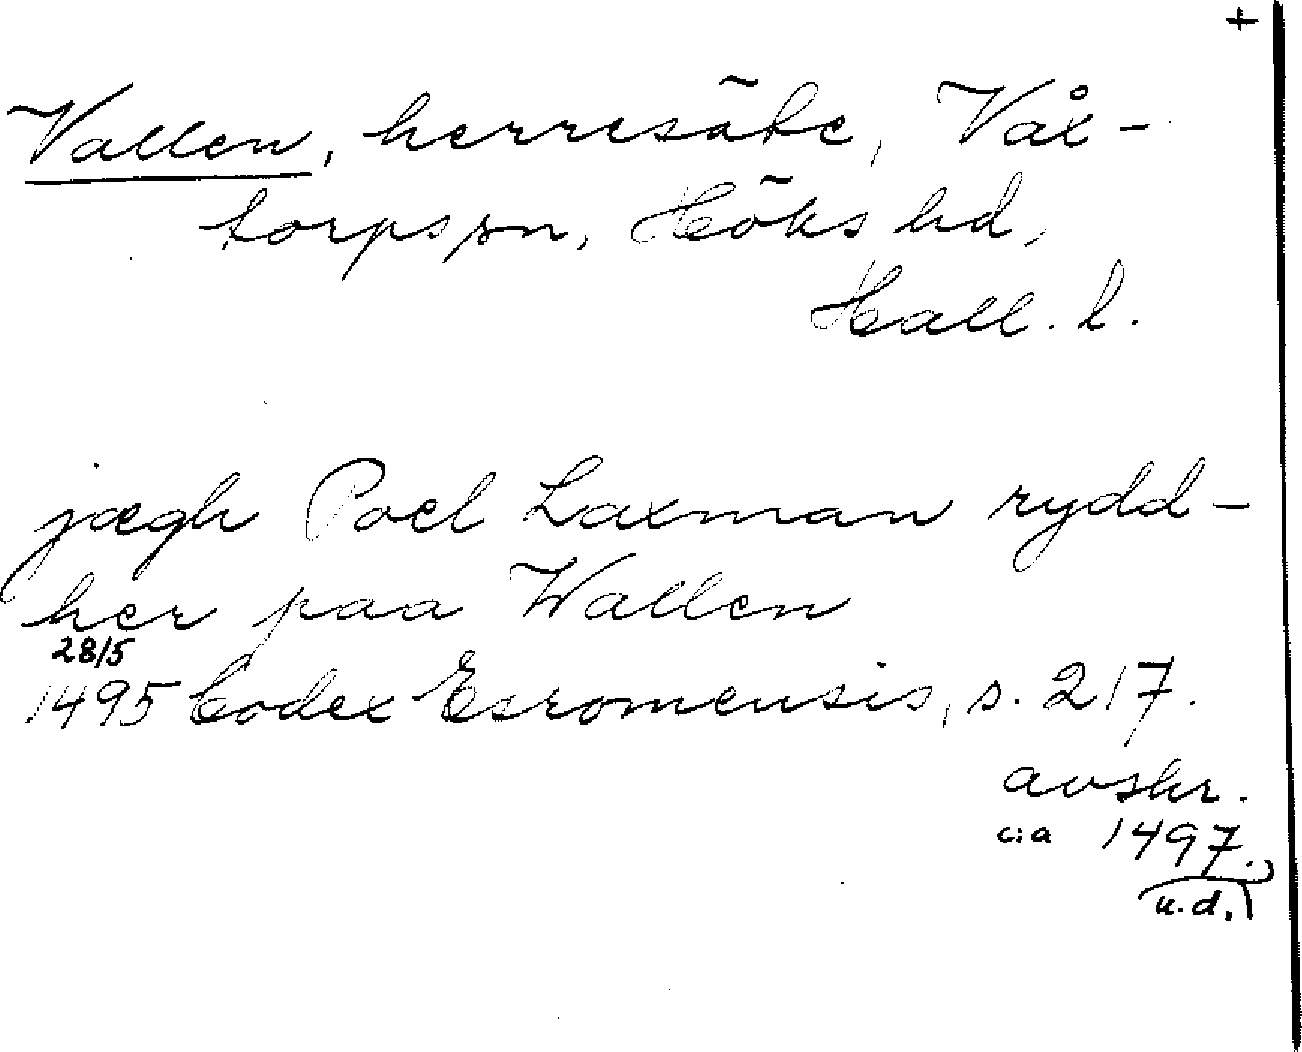 +
Vallen, herresäte, Våx-
torps sn, Höks hd,
Hall. l.
jægh Poel Laxman rydd-
her paa Wallen
28/5
1495 Codex Esromensis, s. 217.
avskr.
c:a 1497.
u.d.